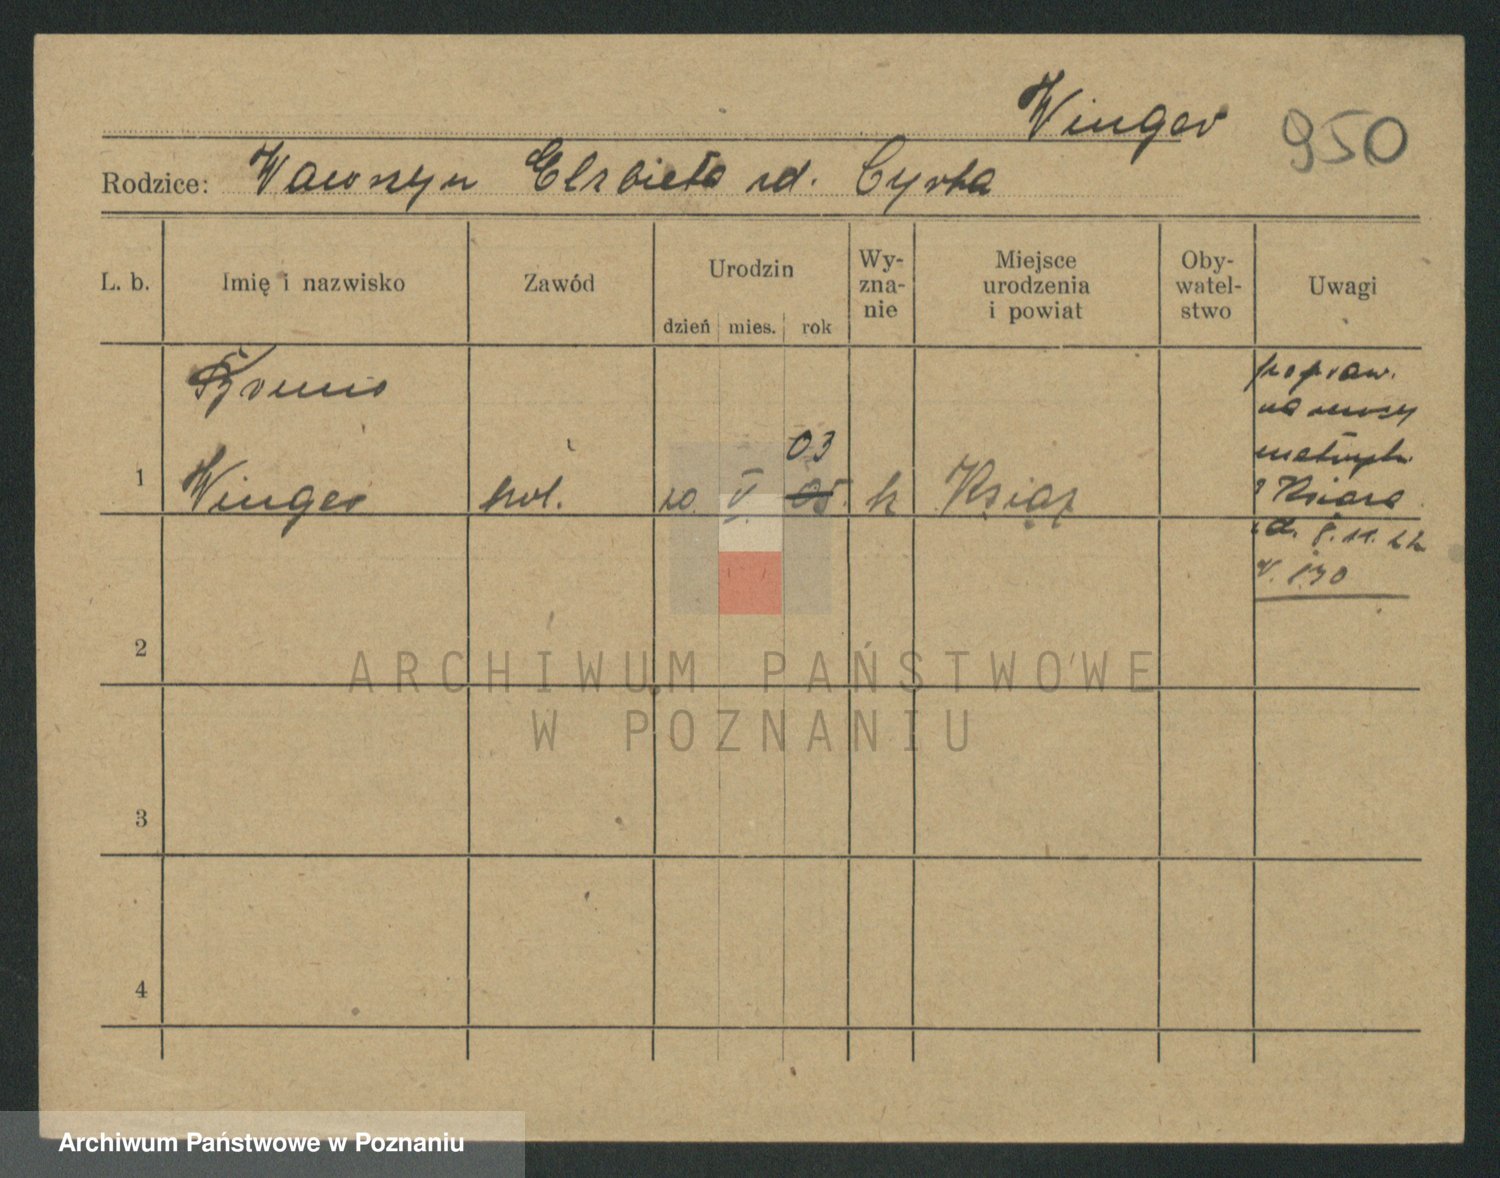 Winger
950
Rodzice: Wawrzyn Elzbieta zd. Cyrka
L. b. Imię i nazwisko Zawód Urodzin dzień mies. rok Wy-zna-nie Miejsce urodzenia i powiat Oby-watel-stwo Uwagi
popraw.
na mocy
03
metryki
1 Winger rol. 10. V. 05. k Książ
z Książa
d. 8. 11. 22
V. 130
2
ARCHIWUM PAŃSTWOWE
W POZNANIU
3
4
Archiwum Państwowe w Poznaniu